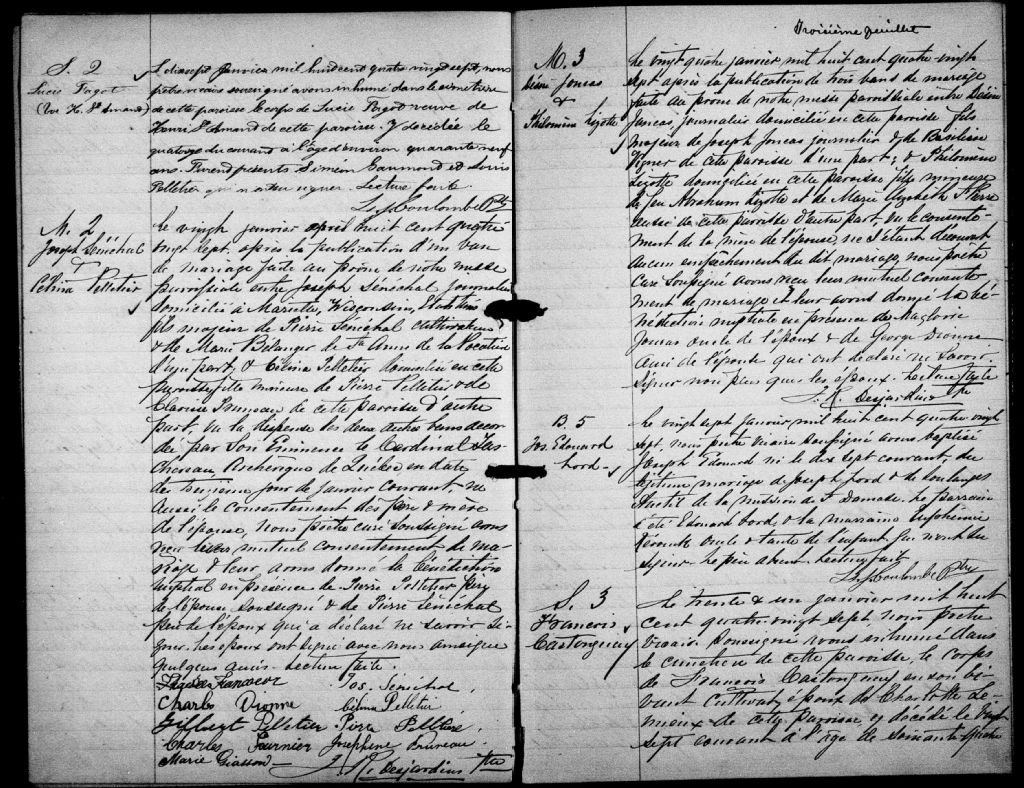 S. 2
Lucie Pagot
(Vve H. St Amand)
Le dixsept janvier mil huit cent quatre vingt sept, nous
prêtre vicaire soussigné avons inhumé dans le cimetière
de cette paroisse le corps de Lucie Pagot veuve de
Henri St Amand de cette paroisse, y décédée le
quatorze du courant à l'âge d'environ quarante neuf
ans. Furent présents Siméon Caumond et Louis
Pelletier qui n'ont su signer. Lecture faite.
L. J. Coulombe Ptre
M. 2
Joseph Sénéchal
&
Célina Pelletier
Le vingt janvier huit cent quatre
vingt sept, après la publication d'un ban
de mariage faite au prône de notre messe
paroissiale entre Joseph Sénéchal journalier
domicilié à Marinette, Wisconsin, Etats Unis
fils majeur de Pierre Sénéchal cultivateur
& de Marie Bélanger de Ste Anne de la Pocatière
d'une part, & Célina Pelletier domiciliée en cette
paroisse fille mineure de Pierre Pelletier & de
Clarisse Pruneau de cette paroisse d'autre
part, vu la dispense des deux autres bans accor
dée par Son Eminence le Cardinal Tas
chereau Archevêque de Québec en date
du treizième jour de janvier courant, vu
aussi le consentement des père & mère
de l'épouse, Nous prêtre curé soussigné avons
reçu leur mutuel consentement de ma-
riage & leur avons donné la bénédiction
nuptiale en présence de Pierre Pelletier père
de l'épouse soussigné & de Pierre Sénéchal
père de l'époux qui a déclaré ne savoir si-
gner. Les époux ont signé avec nous ainsi que
quelques amis. Lecture faite.
Jos. Sénéchal
Charles Dionne Célina Pelletier
Gilbert Pelletier Pierre Pelletier
Charles Fournier Josephine Pruneau
Marie Giasson J. R. Desjardins Ptre
Troisième feuillet
M. 3
Désiré Joncas
&
Philomène Lizotte
Le vingt quatre janvier mil huit cent quatre vingt
sept après la publication de trois bans de mariage
faite au prône de notre messe paroissiale entre Désiré
Joncas, journalier domicilié en cette paroisse fils
majeur de Joseph Joncas journalier & de Basilisse
de cette paroisse d'une part; & Philomène
Lizotte domiciliée en cette paroisse fille mineure
de feu Abraham Lizotte et de Marie Elizabeth St Pierre
aussi de cette paroisse d'autre part. Vu le consente-
ment de la mère de l'épouse, ne s'étant découvert
aucun empêchement au dit mariage, nous prêtre
Curé soussigné avons reçu leur mutuel consente
ment de mariage et leur avons donné la bé-
nédiction nuptiale en présence de Magloire
Joncas oncle de l'époux & de George Dionne
ami de l'épouse qui ont déclaré ne savoir
signer non plus que les époux. Lecture faite
J. R. Desjardins Ptre
B. 5
Jos. Edouard
Lord
Le vingt sept janvier mil huit cent quatre vingt
sept, nous prêtre vicaire soussigné avons baptisé
Joseph Edouard né le dix sept courant, du
légitime mariage de Joseph Lord & de
de la mission de St Damase. Le parrain
a été Edouard Lord & la marraine Euphémie
oncle & tante de l'enfant qui n'ont su
signer. Le père absent. Lecture fait.
L. J. Coulombe Ptre
S. 3
Francois
Castonguay
Le trente & un janvier mil huit
cent quatre-vingt sept nous prêtre
vicaire soussigné avons inhumé dans
le cimetière de cette paroisse, le corps
de François Castonguay en son vi-
vant cultivat. époux de Charlotte Le-
mieux de cette paroisse, y décédé le vingt
sept courant à l'âge de soixante-quatre